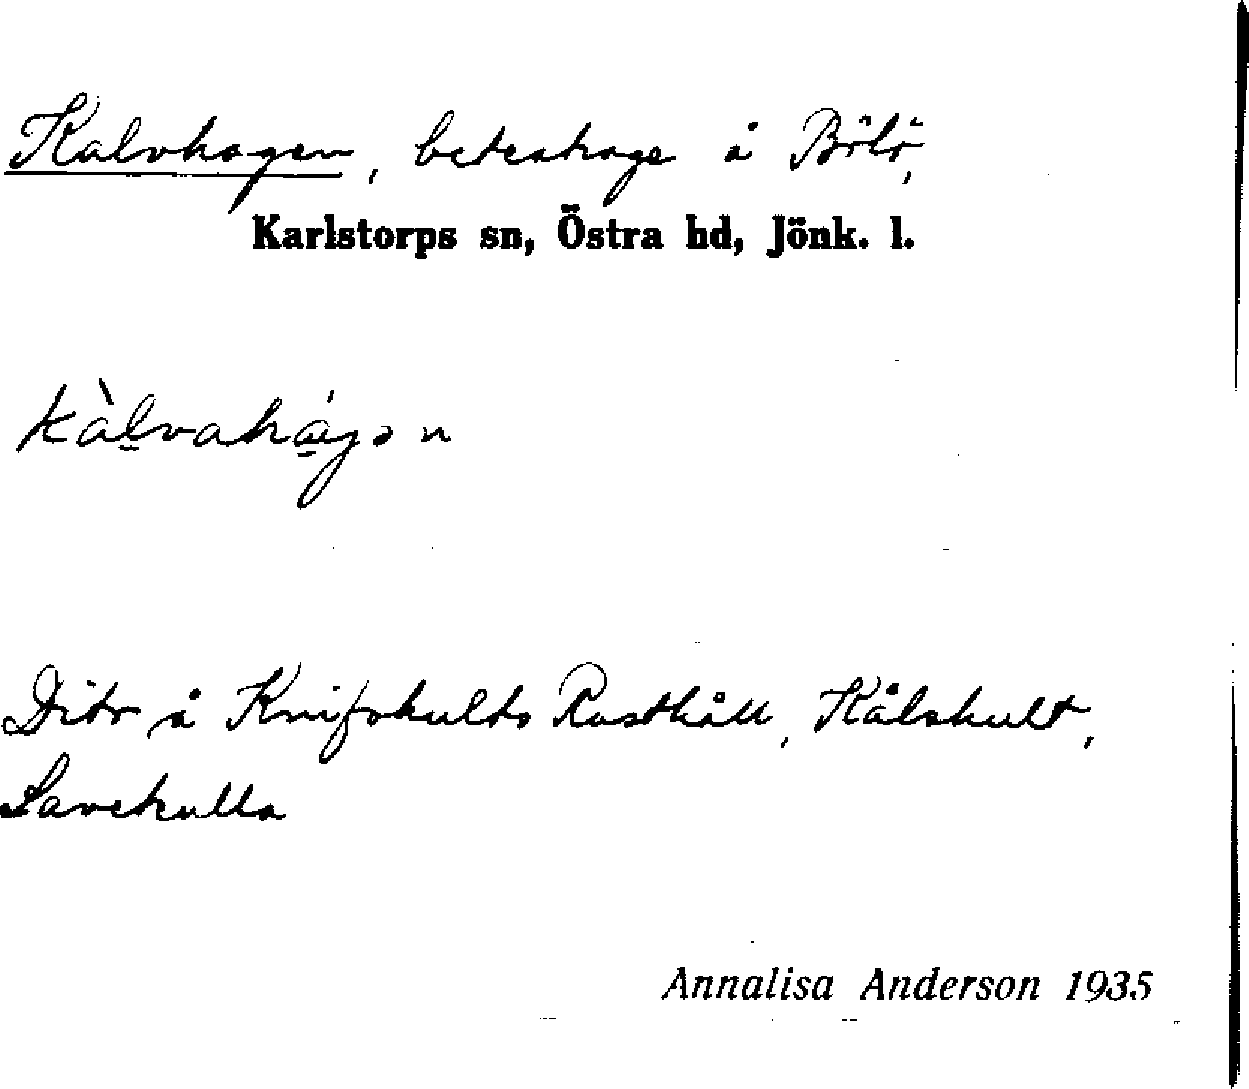 Kalvhagen, beteshage å Bölö,
Karlstorps sn, Östra hd, Jönk. l.
kàlvahágən
Dito å Knifskults Rusthåll, Kålskult,
Lavekulla
Annalisa Anderson 1935